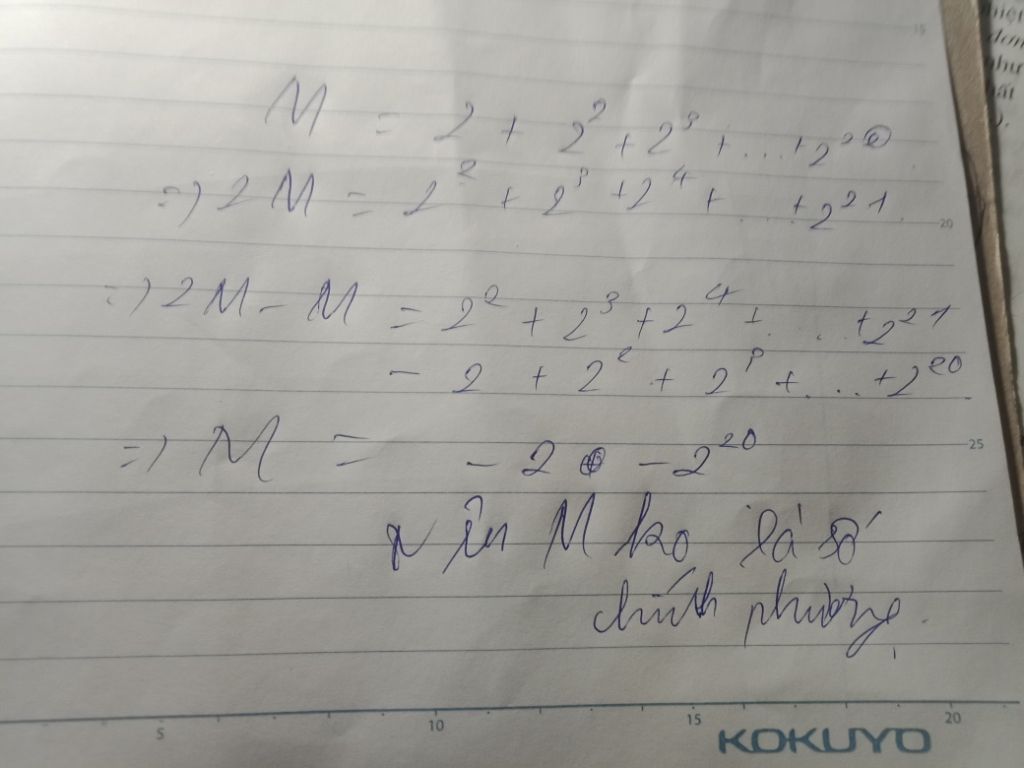 M = 2 + 2² + 2³ + ... + 2²⁰
=> 2M = 2² + 2³ + 2⁴ + ... + 2²¹
=> 2M - M = 2² + 2³ + 2⁴ + ... + 2²¹
- 2 + 2² + 2³ + ... + 2²⁰
=> M = - 2 - 2²⁰
nên M ko là số
chính phương.
15
20
25
5 10 15 20
KOKUYO